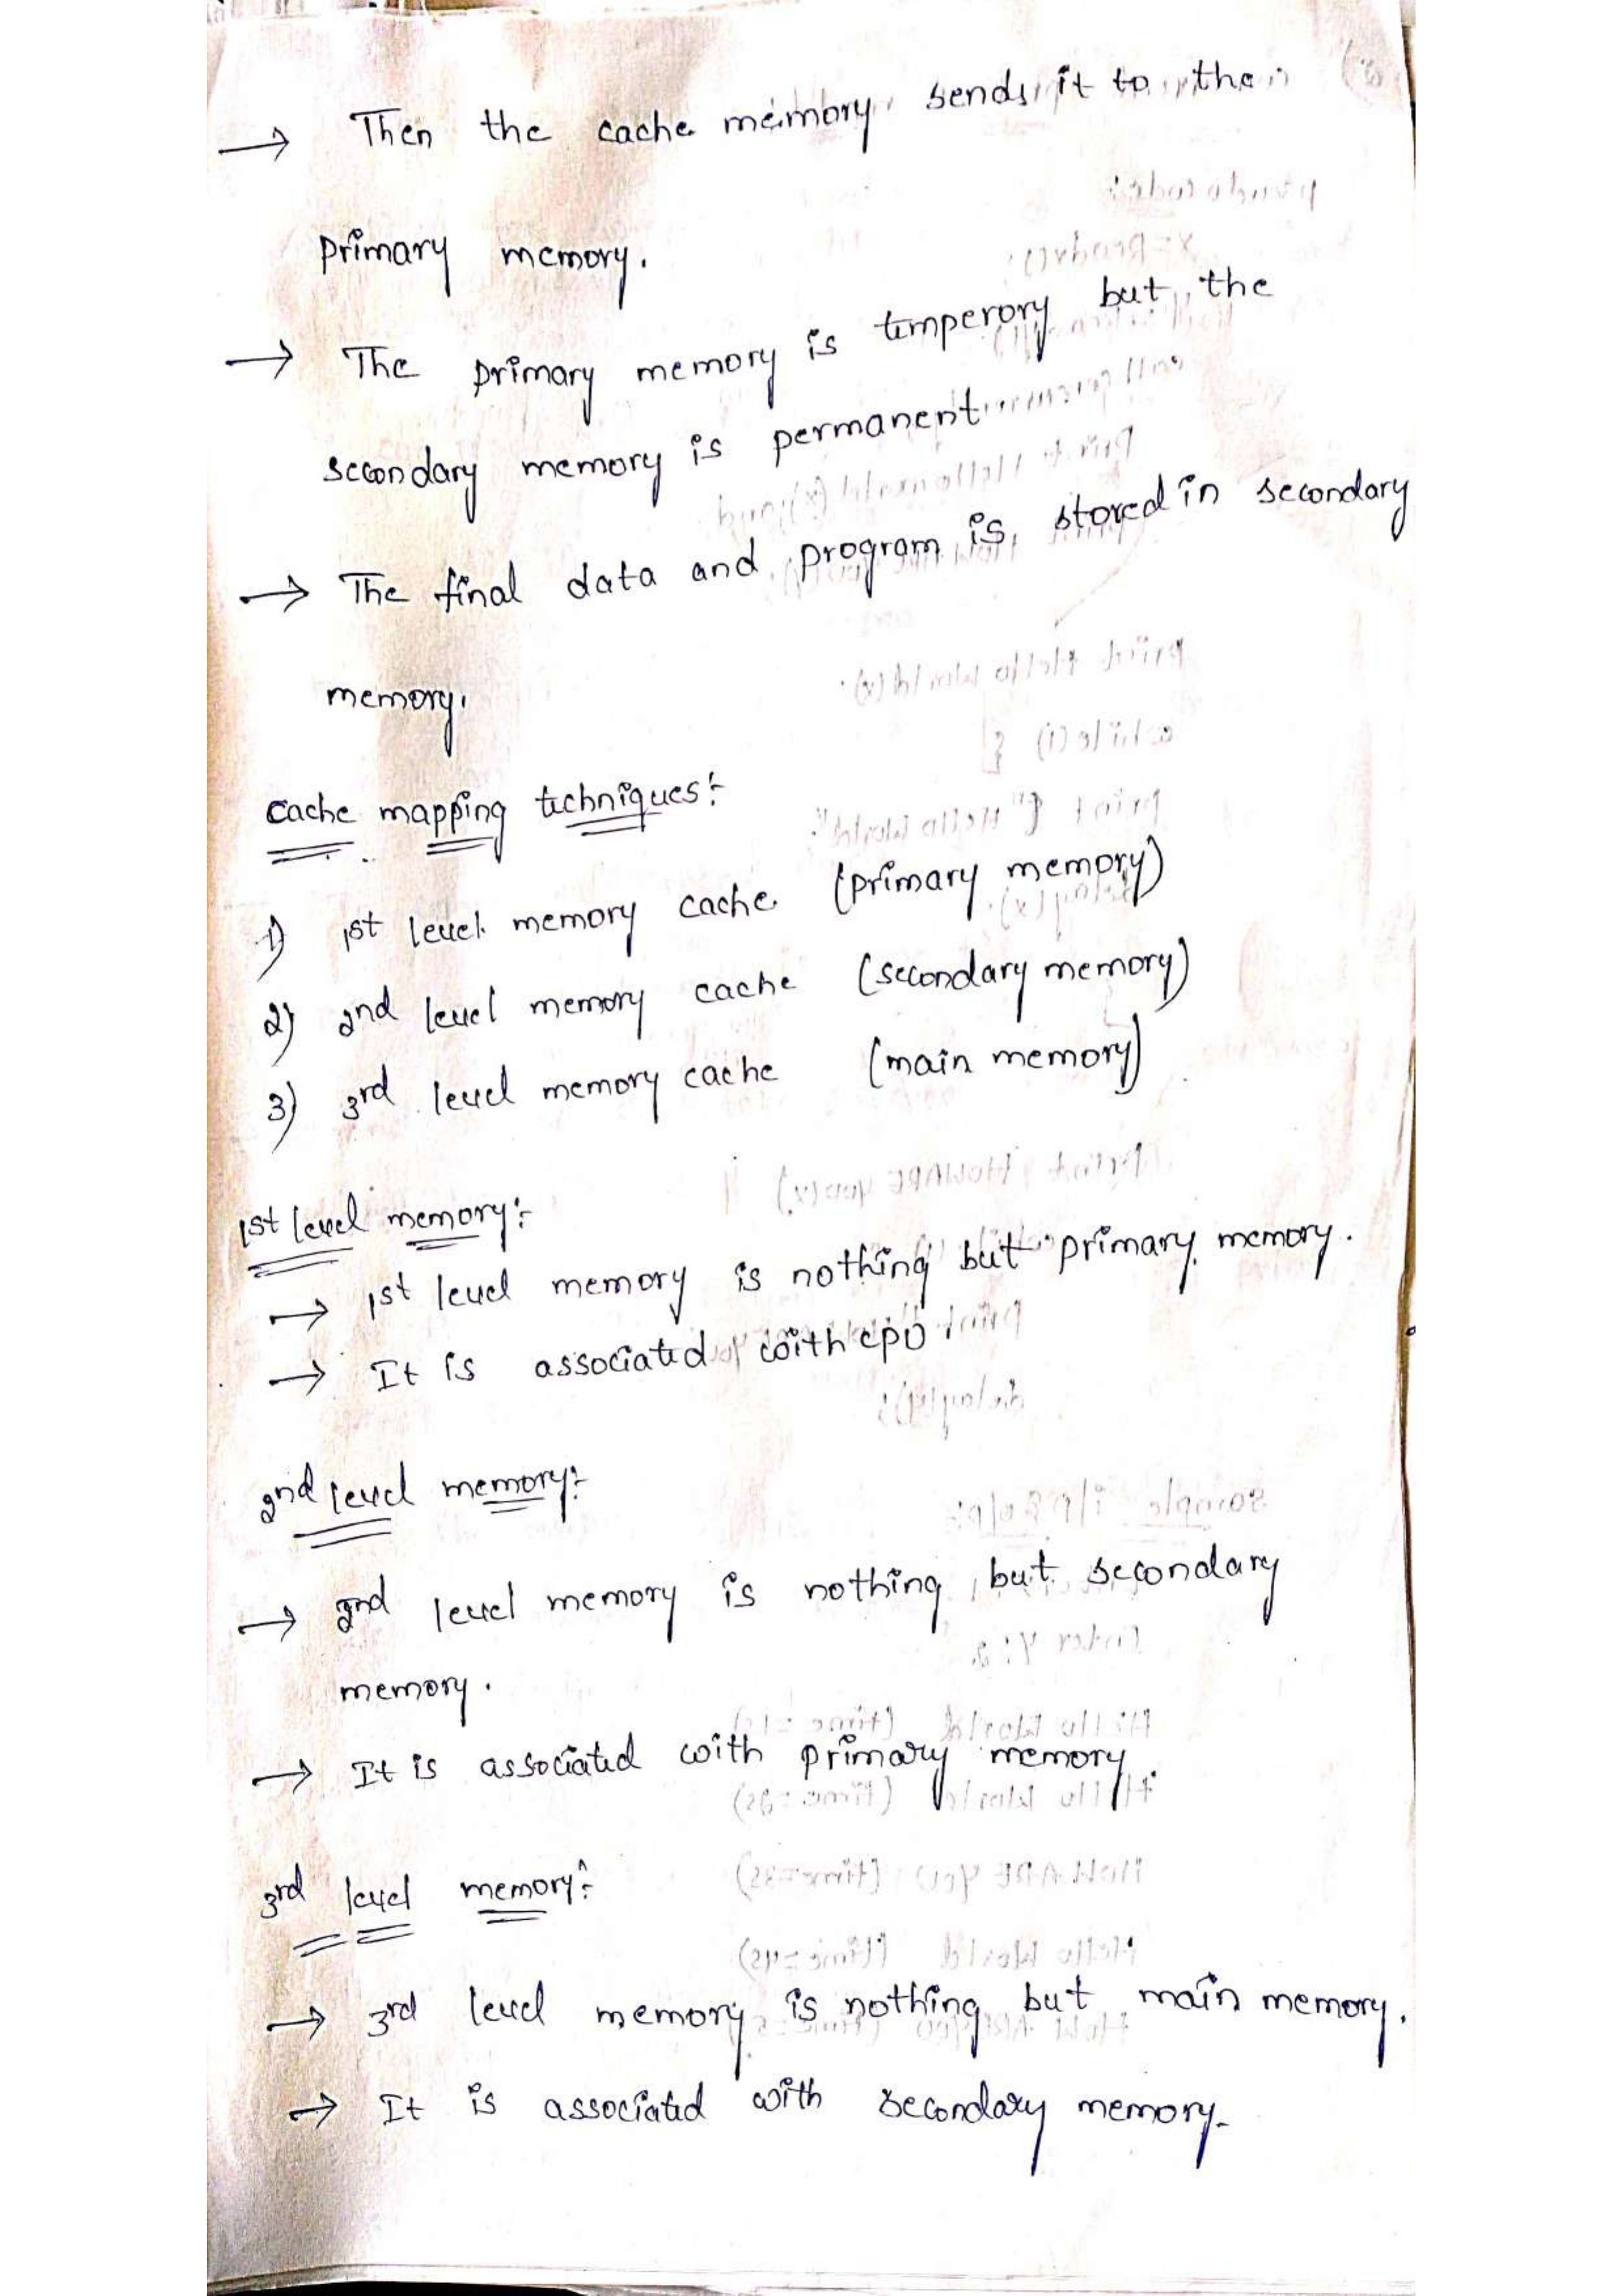 → Then the cache memory sends it to the
primary memory.
→ The primary memory is temperory but the
secondary memory is permanent
→ The final data and program is stored in secondary
memory.
cache mapping techniques:-
1) 1st level memory cache (primary memory)
2) 2nd level memory cache (secondary memory)
3) 3rd level memory cache (main memory)
1st level memory:-
→ 1st level memory is nothing but primary memory.
→ It is associated with cpu
2nd level memory:-
→ 2nd level memory is nothing but secondary
memory.
→ It is associated with primary memory.
3rd level memory:-
→ 3rd level memory is nothing but main memory.
→ It is associated with secondary memory.